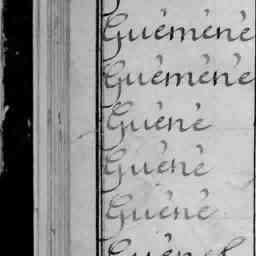 Guéméné
Guéméné
Guéné
Guéné
Guéné